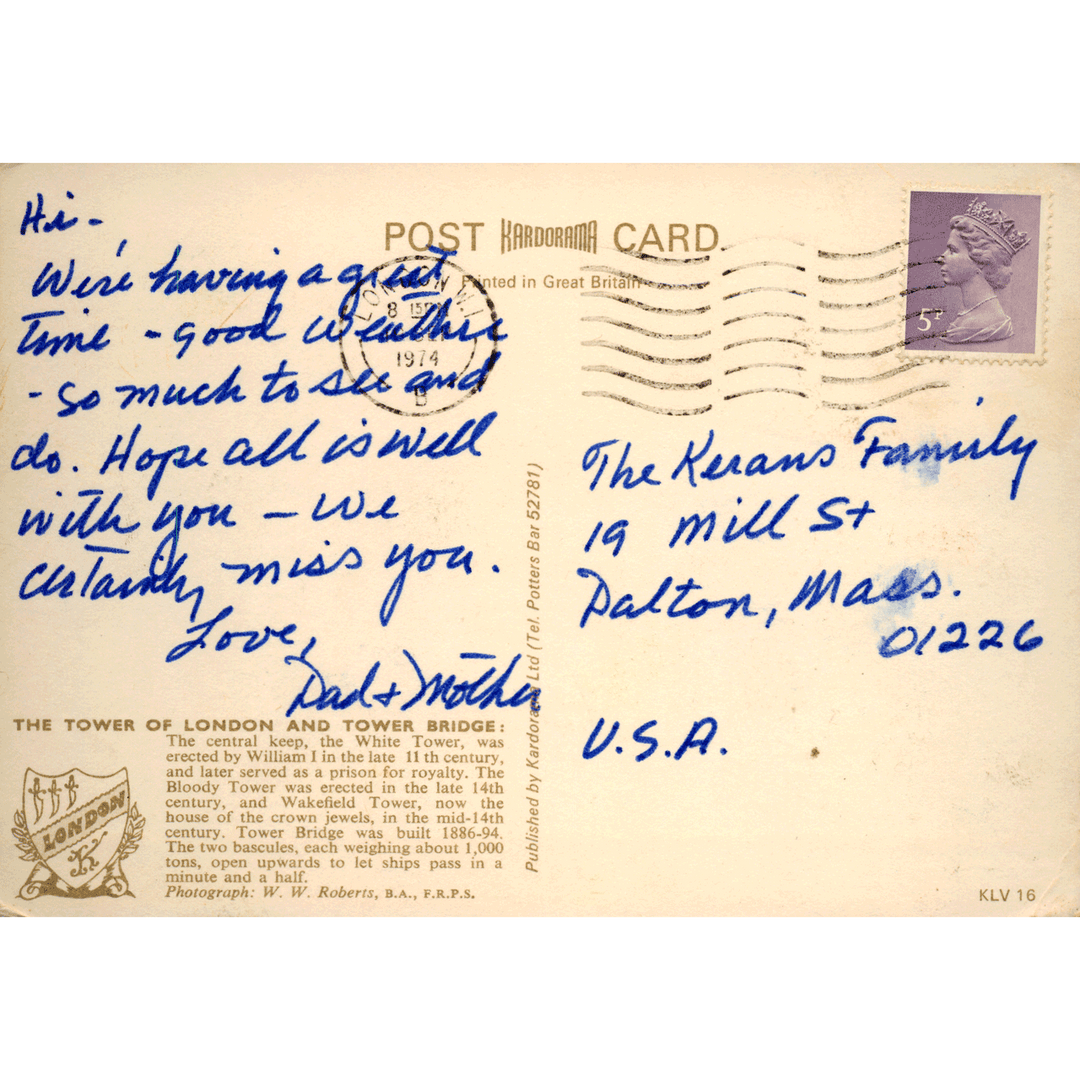 Hi -
We're having a great
time - good weather
- so much to see and
do. Hope all is well
with you - we
certainly miss you.
Love,
Dad + Mother
POST KARDORAMA CARD
Printed in Great Britain
LONDON W.1
8 15
1974
B
5P
The Kerans Family
19 Mill St
Dalton, Mass.
01226
U.S.A.
Published by Kardorama Ltd (Tel. Potters Bar 52781)
THE TOWER OF LONDON AND TOWER BRIDGE:
The central keep, the White Tower, was
erected by William I in the late 11th century,
and later served as a prison for royalty. The
Bloody Tower was erected in the late 14th
century, and Wakefield Tower, now the
house of the crown jewels, in the mid-14th
century. Tower Bridge was built 1886-94.
The two bascules, each weighing about 1,000
tons, open upwards to let ships pass in a
minute and a half.
Photograph: W. W. Roberts, B.A., F.R.P.S.
LONDON
K
KLV 16